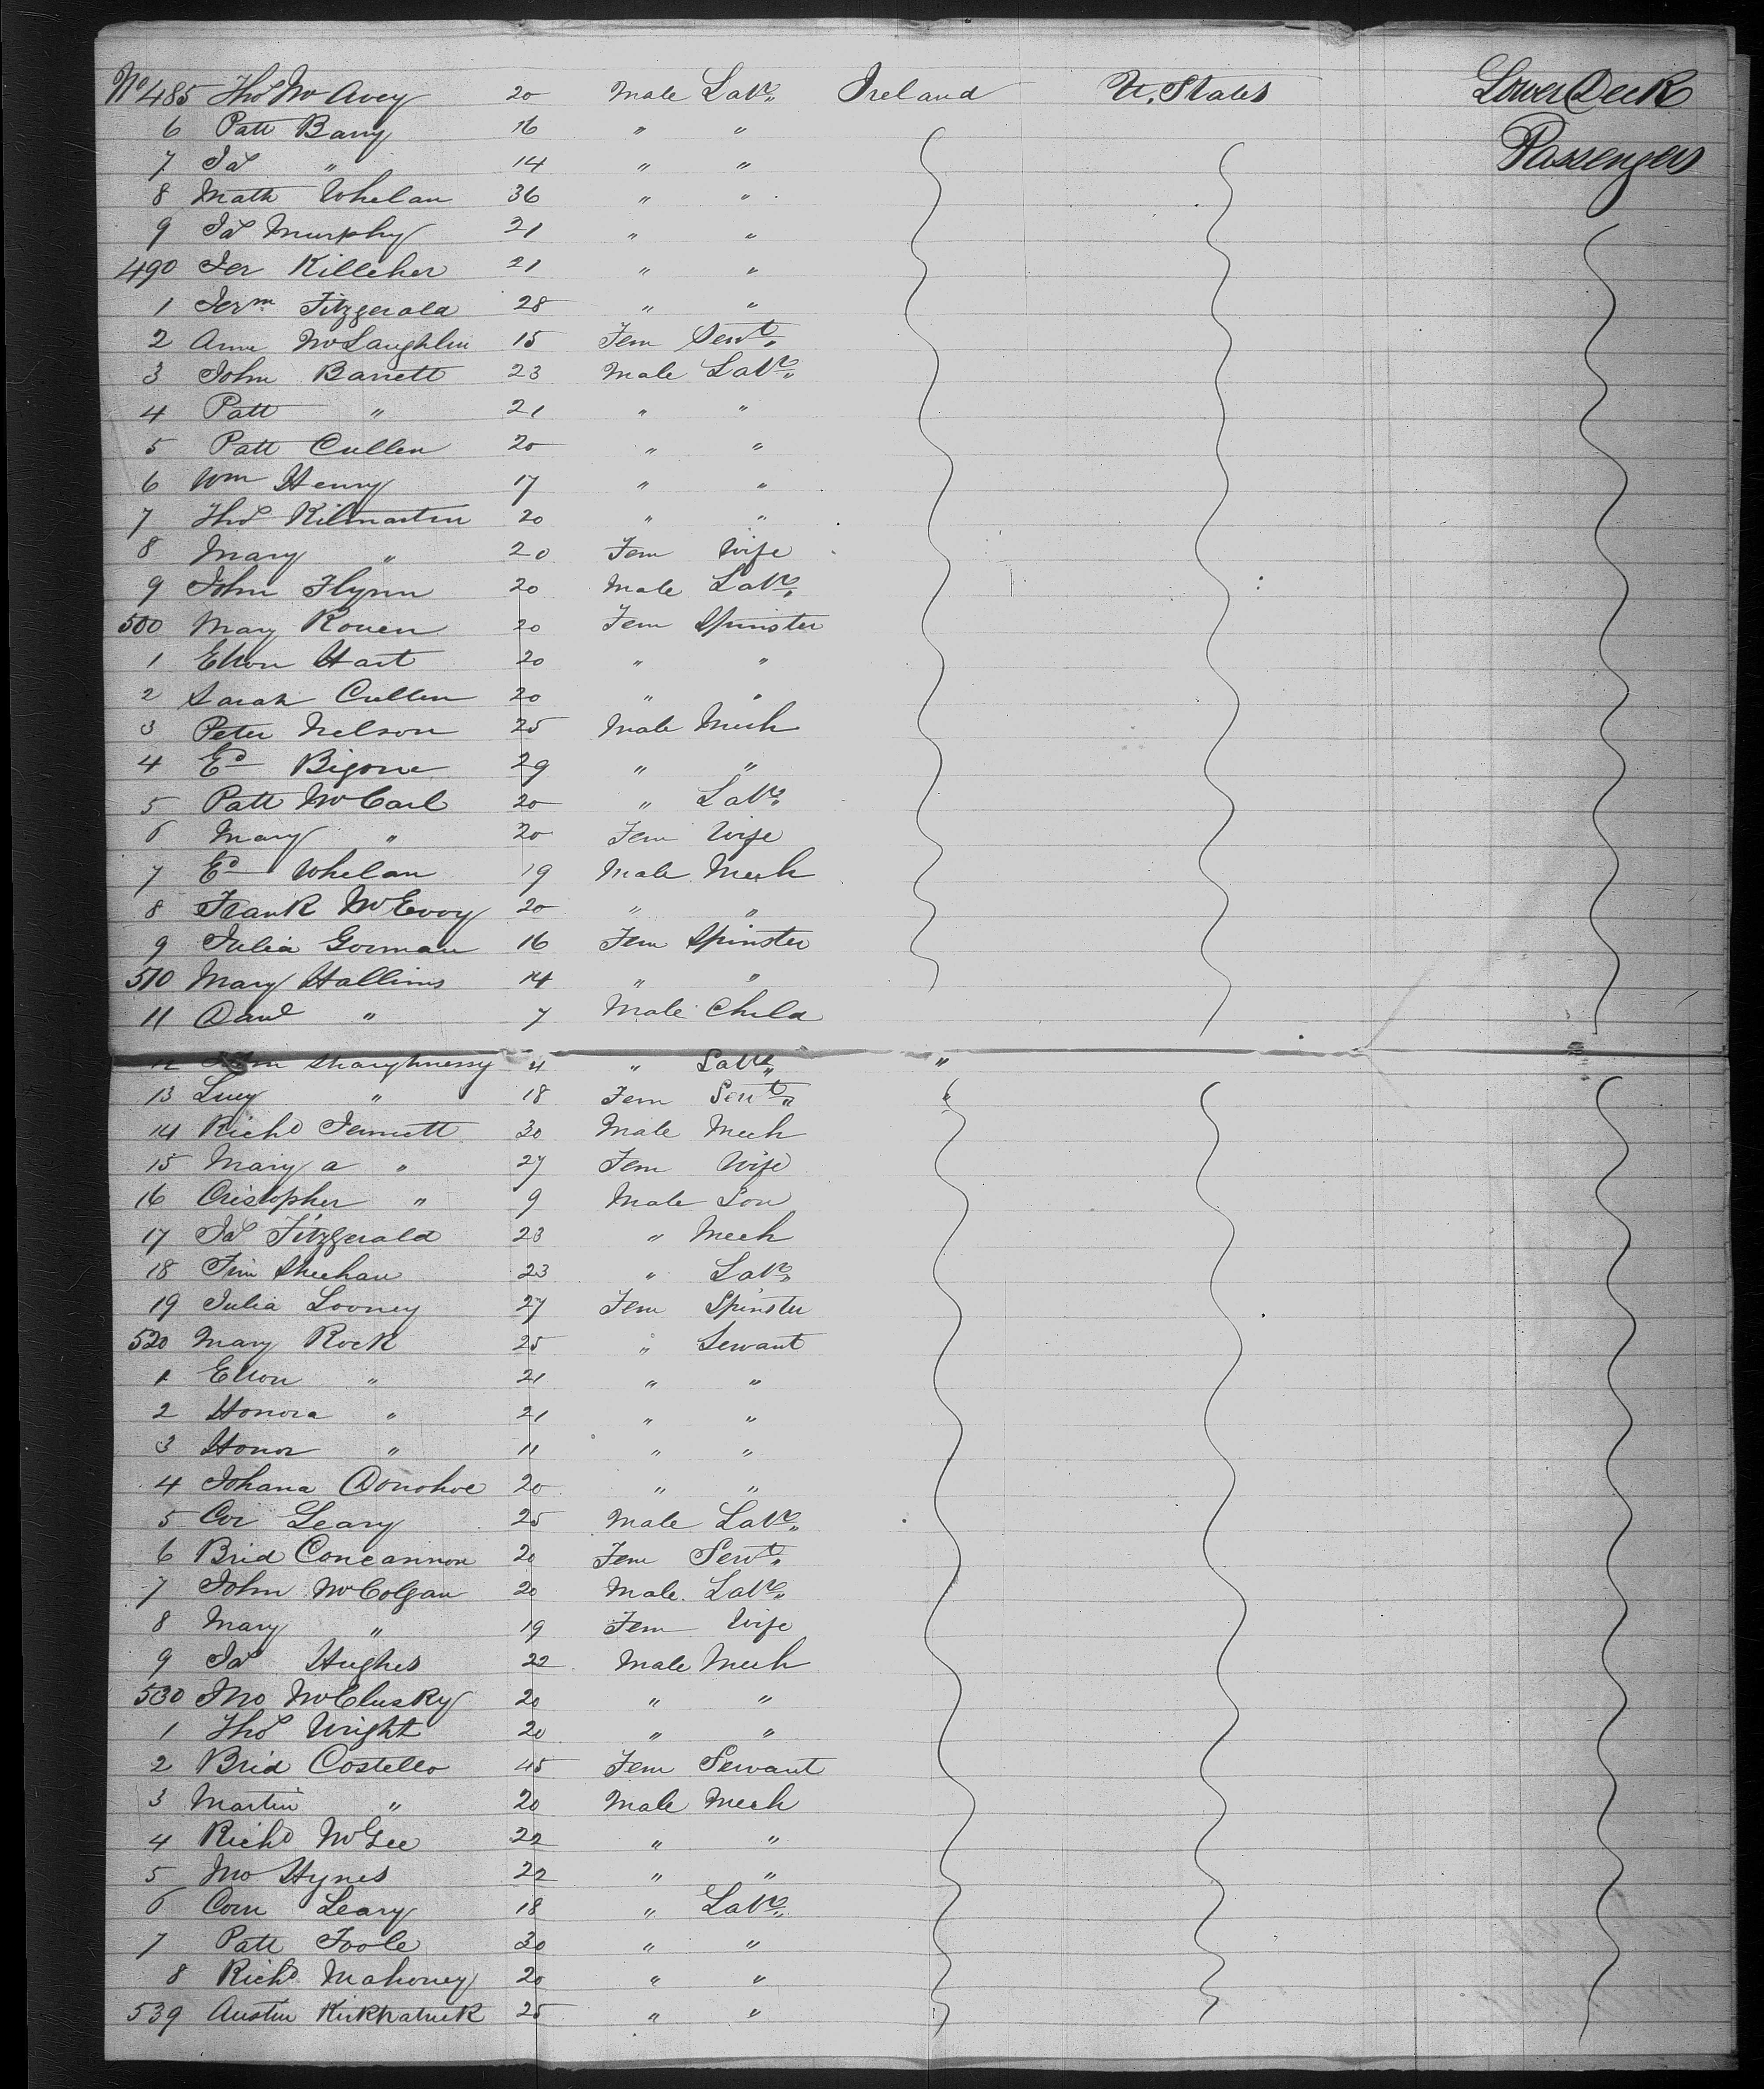 No 485 Thos McAvey 20 Male Labr. Ireland U. States Lower Deck
6 Patt Barry 16 " " Passengers
7 Jas " 14 " "
8 Math Whelan 36 " "
9 Jas Murphy 21 " "
490 Jer Killeher 21 " "
1 Jerm. Fitzgerald 28 " "
2 Ann McLaughlin 15 Fem Servt.
3 John Barrett 23 Male Labr.
4 Patt " 21 " "
5 Patt Cullen 20 " "
6 Wm Henry 17 " "
7 Thos Kilmartin 20 " "
8 Mary " 20 Fem Wife
9 John Flynn 20 Male Labr.
500 Mary Rouen 20 Fem Spinster
1 Ellen Hart 20 " "
2 Sarah Cullen 20 " "
3 Peter Nelson 25 Male Mech
4 Ed Bigone 29 " "
5 Patt McCarl 20 " Labr.
6 Mary " 20 Fem Wife
7 Ed Whelan 19 Male Mech
8 Frank McEvoy 20 " "
9 Julia Gorman 16 Fem Spinster
510 Mary Hallims 14 " "
11 Danl " 7 Male Child
12 Shaughnessy " Labr. "
13 Lucy " 18 Fem Servt. "
14 Richd Jennett 30 Male Mech
15 Mary a " 27 Fem Wife
16 Cristopher " 9 Male Son
17 Jas Fitzgerald 23 " Mech
18 Tim Sheehan 23 " Labr.
19 Julia Looney 27 Fem Spinster
520 Mary Rock 25 " Servant
1 Ellen " 21 " "
2 Honora " 21 " "
3 Honor " 11 " "
4 Johana Donohoe 20 " "
5 Cor Leary 25 Male Labr.
6 Brid Concannon 20 Fem Servt.
7 John McColgan 20 Male Labr.
8 Mary " 19 Fem Wife
9 Jas Hughes 22 Male Mech
530 Jno McClusky 20 " "
1 Thos Wright 20 " "
2 Brid Costello 45 Fem Servant
3 Martin " 20 Male Mech
4 Richd McGee 22 " "
5 Jno Hynes 22 " "
6 Corn Leary 18 " Labr.
7 Patt Toole 30 " "
8 Richd Mahoney 20 " "
539 Austin Kirkpatrick 25 " "